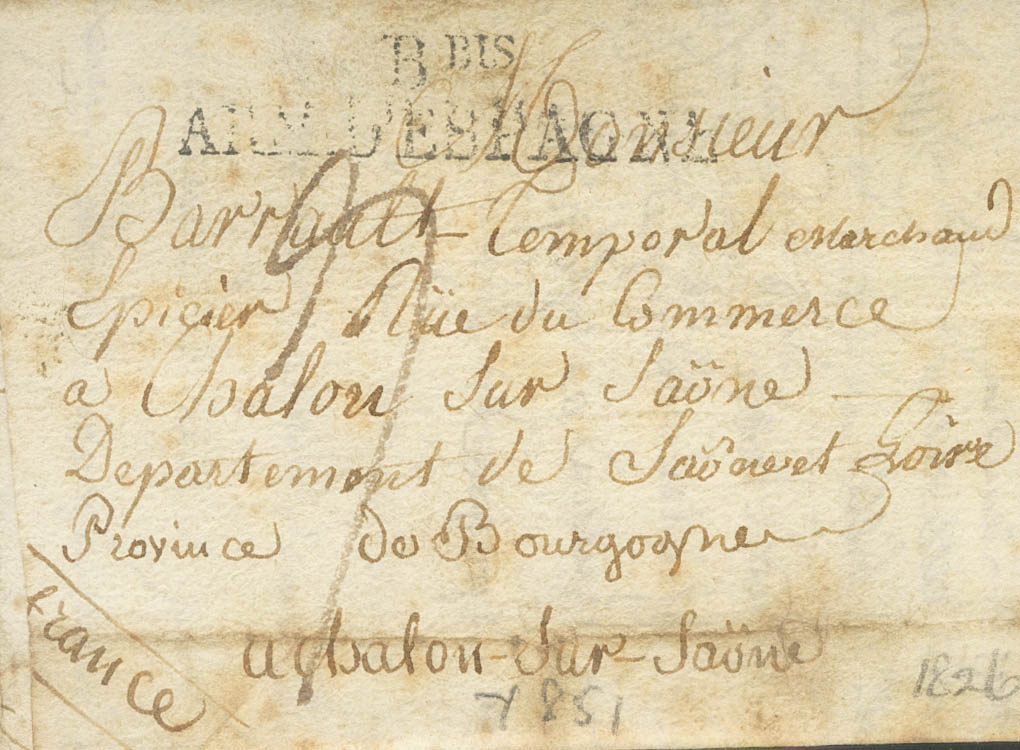 B BIS
ARM. D'ESPAGNE
Monsieur
Barrault Temporal Marchand
Epicier Rüe du Commerce
a Chalon sur Saöne
Departement de Saöne et Loire
Province de Bourgogne
a Chalon-Sur-Saöne
France
1826